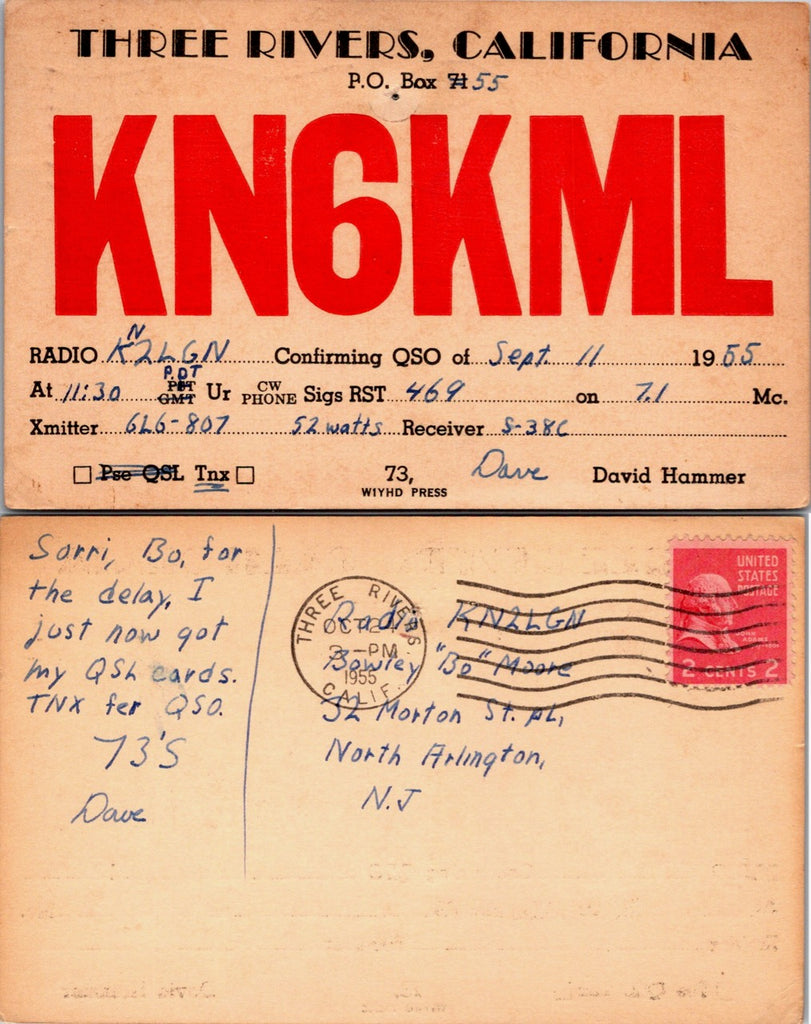 THREE RIVERS, CALIFORNIA
P.O. Box 71 55
KN6KML
N
RADIO K2LGN Confirming QSO of Sept. 11 1955
PDT
At 11:30 PST GMT Ur CW PHONE Sigs RST 469 on 7.1 Mc.
Xmitter 6L6-807 52 watts Receiver S-38C
Pse QSL Tnx 73, Dave David Hammer
W1YHD PRESS
Sorri, Bo, for
the delay, I
just now got
my QSL cards.
TNX fer QSO.
73'S
Dave
THREE RIVERS
OCT
3-PM
1955
CALIF.
UNITED
STATES
POSTAGE
JOHN
ADAMS
2 CENTS 2
Radio KN2LGN
Bowley "Bo" Moore
32 Morton St. pL,
North Arlington,
N.J